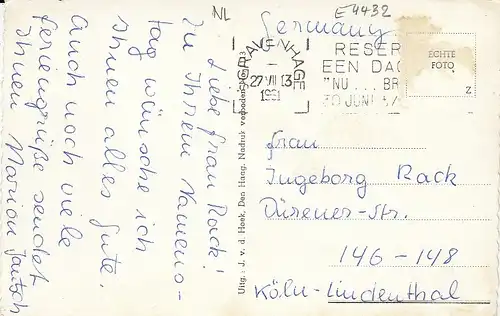 NL
Germany
E 4432
'S GRAVENHAGE
27 VII 13
1951
RESER
EEN DAG
"NU ... BR
30 JUNI
ECHTE
FOTO
Z
Liebe Frau Rack!
Zu Ihrem Namens-
tag wünsche ich
Ihnen alles Gute.
Auch noch viele
Feriengrüße sendet
Ihnen Marion
Uitg.: J. v. d. Hoek, Den Haag. Nadruk verboden
Frau
Ingeborg Rack
Dürener-Str.
146-148
Köln-Lindenthal